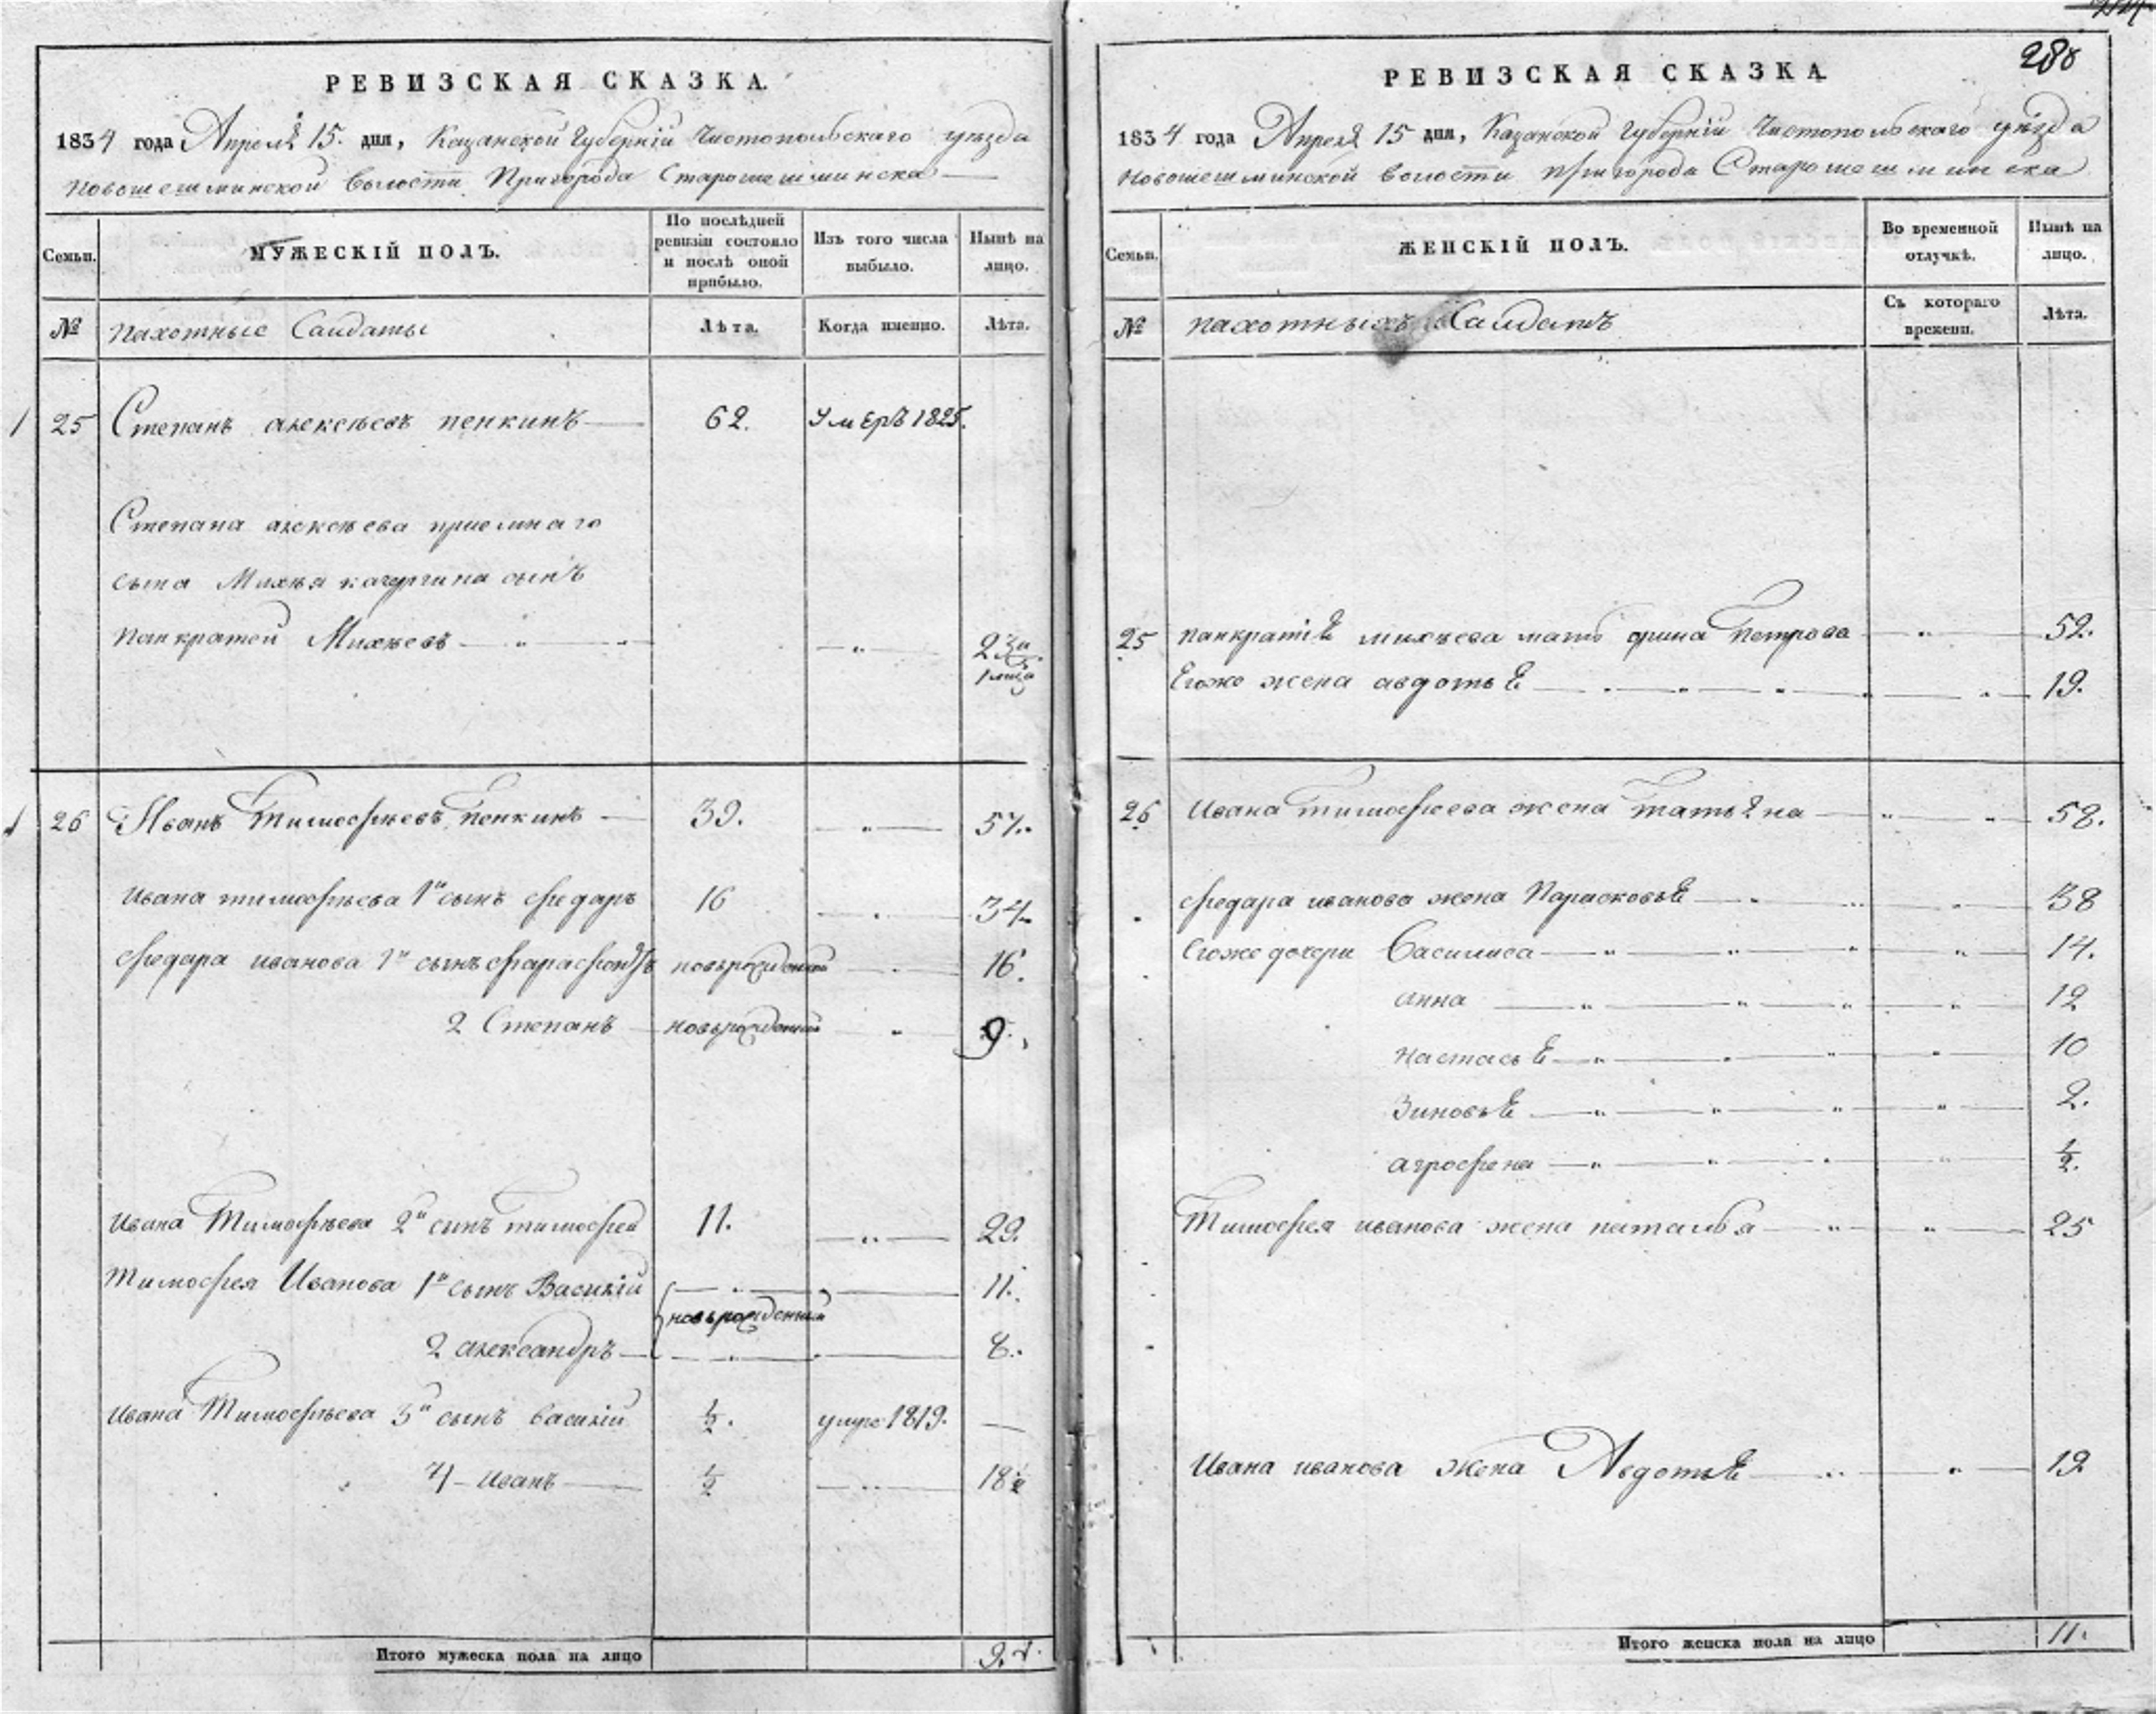 РЕВИЗСКАЯ СКАЗКА.
1834 года Апреля 15. дня, Казанской Губернiи Чистопольскаго уѣзда
Новошешминской волости Пригорода Старошешминска
Семьи.
МУЖЕСКIЙ ПОЛЪ.
По послѣдней ревизiи состояло и послѣ оной прибыло.
Изъ того числа выбыло.
Нынѣ на лицо.
№
пахотные Салдаты
Лѣта.
Когда именно.
Лѣта.
1 25 Степанъ алексѣевъ пенкинъ 62. Умеръ 1825.
Степана алексѣева приемнаго
сына Михѣя качергина сынъ
панкратей Михѣевъ 23 и
26 Иванъ Тимофѣевъ Пенкинъ 39. 57.
Ивана тимофѣева 1й сынъ федаръ 16 34
федара иванова 1й сынъ новорожденный 16.
2 Степанъ новорожденный 9.
Ивана Тимофѣева 2й сынъ тимофей 11. 29.
Тимофея Иванова 1й сынъ Василiй 11.
новорожденныи
2 александръ 8.
Ивана Тимофѣева 3й сынъ василiй ½. умре 1819.
4 иванъ ½ 18½
Итого мужеска пола на лицо 9.
288
РЕВИЗСКАЯ СКАЗКА
1834 года Апреля 15 дня, Казанской Губернiи Чистопольскаго уѣзда
Новошешминской волости пригорода Старошешминска
Семьи.
ЖЕНСКIЙ ПОЛЪ.
Во временной отлучкѣ.
Нынѣ на лицо.
№
пахотныхъ Салдатъ
Съ котораго времени.
Лѣта.
25 панкратiя михѣева мать Петрова 52.
Егоже жена авдотья 19.
26 Ивана тимофѣева жена татьяна 58.
федара иванова жена Парасковья 38
Егоже дочери Василиса 14.
анна 12
настасья 10
Зиновья 2.
агрофена ½.
Тимофея иванова жена наталья 25
Ивана иванова жена Авдотья 19
Итого женска пола на лицо 11.